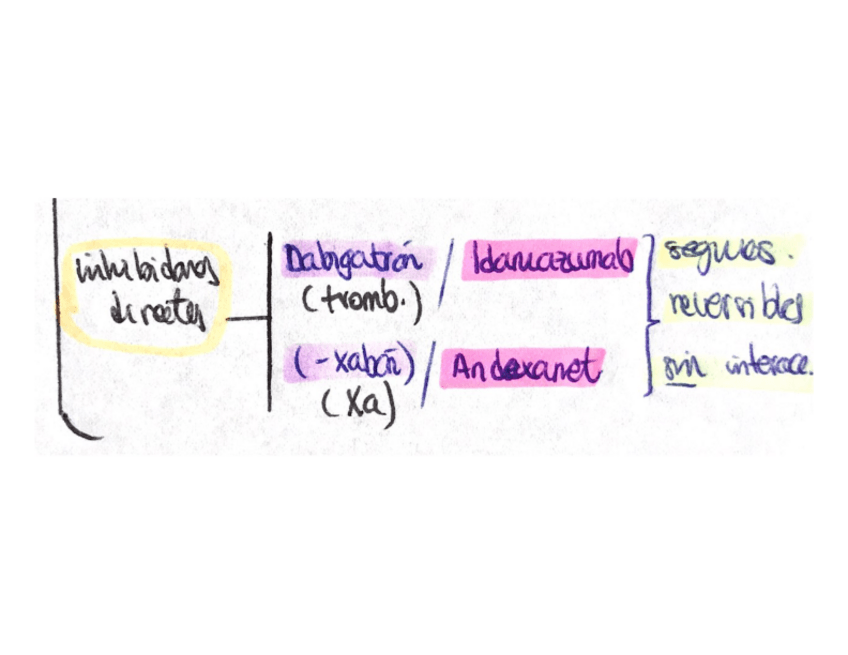 inhibidores
directos
Dabigatrán / Idarucizumab
(tromb.)
(-xabán) / Andexanet
(Xa)
seguros.
reversibles
sin interacc.